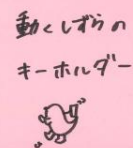 動くうずらの
キーホルダー